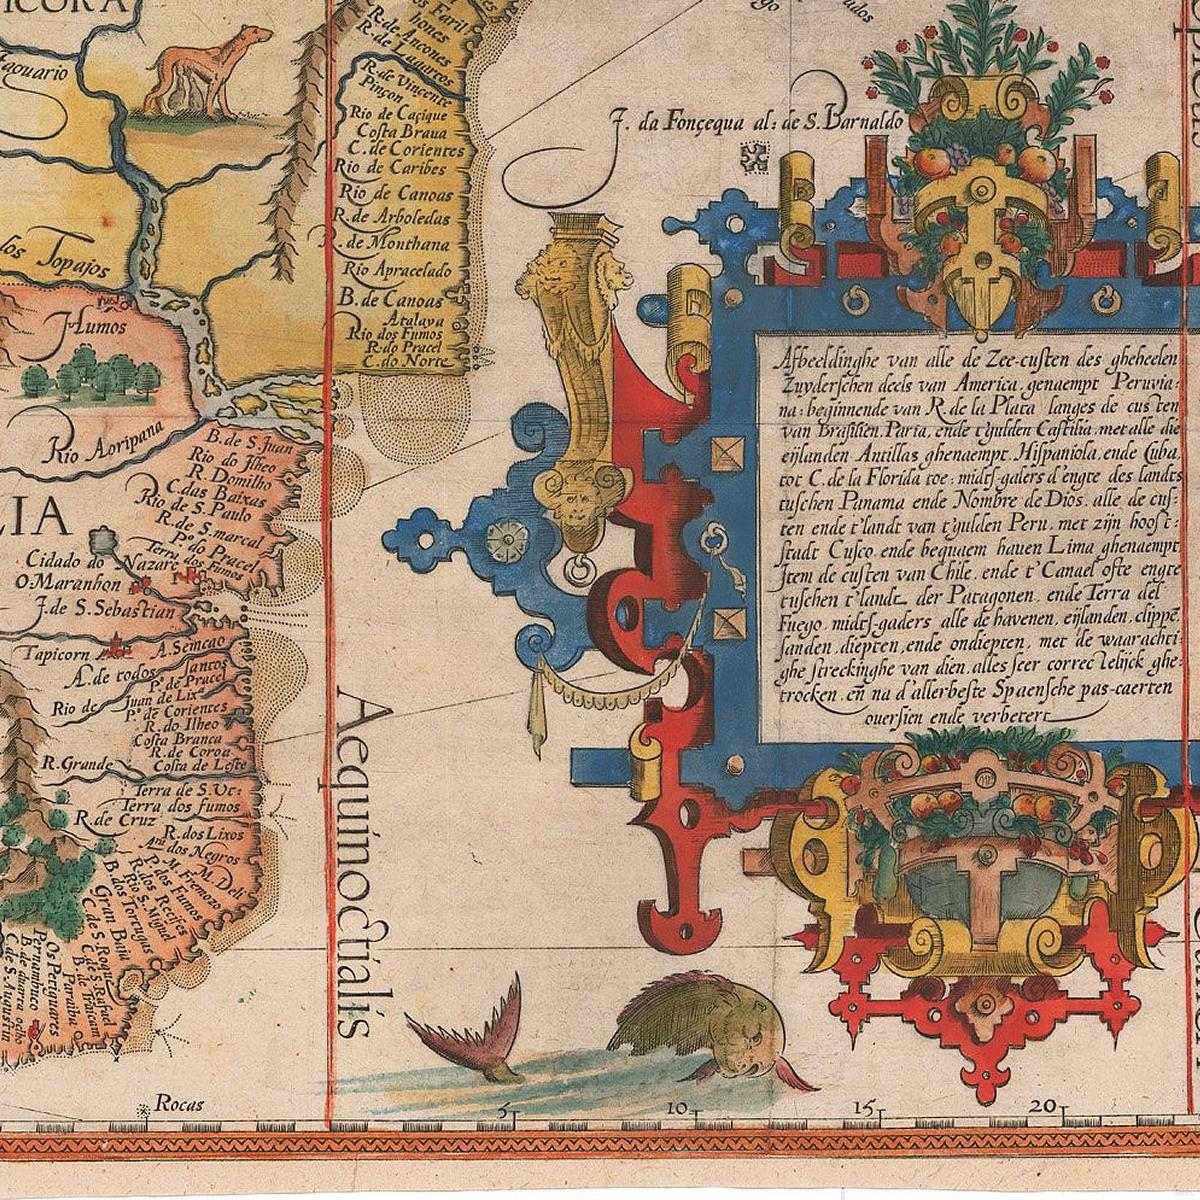 Taguario
los Topajos
Humos
Rio Aoripana
LIA
hones
R. de Ancones
R. de Lagartos
R. de Vincente
Pinçon
Rio de Caçique
Costa Braua
C. de Corientes
Rio de Caribes
Rio de Canoas
R. de Arboledas
R. de Monthana
Rio Apracelado
B. de Canoas
Atalaya
Rio dos Fumos
R. do Pracel
C. do Norte
B. de S. Juan
Rio do Jlheo
R. Domilho
C. das Baixas
Rio de S. Paulo
R. de S. marcal
Po. do Pracel
Terra dos fumos
Cidado do Nazare
O. Maranhon
J. de S. Sebastian
Tapicorn
A. Semcao
A. de todos Santos
Po. de Pracel
Rio de Juan de Lixa
Po. de Corientes
R. do Ilheo
Costa Branca
R. de Coroa
R. Grande
Costa de Leste
Terra de S. Vt:
Terra dos fumos
R. de Cruz
R. dos Lixos
Ane. dos Negros
M. Deli
M. Fremozo
P. dos Fumos
R. dos Recifes
Rio S. Miguel
B. dos Tortugas
Gran Baia
C. de S. Roque
C. de S. Rafael
B. de Trhicam
Paraiba
Os Petiguares
Pernambuco
C. de S. Augustin
Rocas
Aequinoctialis
J. da Fonçequa al: de S. Barnaldo
Afbeeldinghe van alle de Zee-custen des gheheelen
Zuyderschen deels van America, genaempt Peruvia-
na: beginnende van R. de la Plata langes de custen
van Brasilien, Paria, ende t'gulden Castilia, met alle die
eijlanden Antillas ghenaempt, Hispaniola, ende Cuba,
tot C. de la Florida toe: midts-gaders d'engte des landts
tuschen Panama ende Nombre de Dios, alle de cus-
ten ende t'landt van t'gulden Peru, met zijn hooft-
stadt Cusco, ende bequaem hauen Lima ghenaempt,
Jtem de custen van Chile, ende t'Canael ofte engte
tuschen t'landt der Patagonen, ende Terra del
Fuego, midts-gaders alle de havenen, eijlanden, clippē
sanden, diepten, ende ondiepten, met de waarachti-
ghe streckinghe van dien, alles seer correctelijck ghe-
trocken, eñ na d'allerbeste Spaensche pas-caerten
ouersien ende verbetert
5 10 15 20